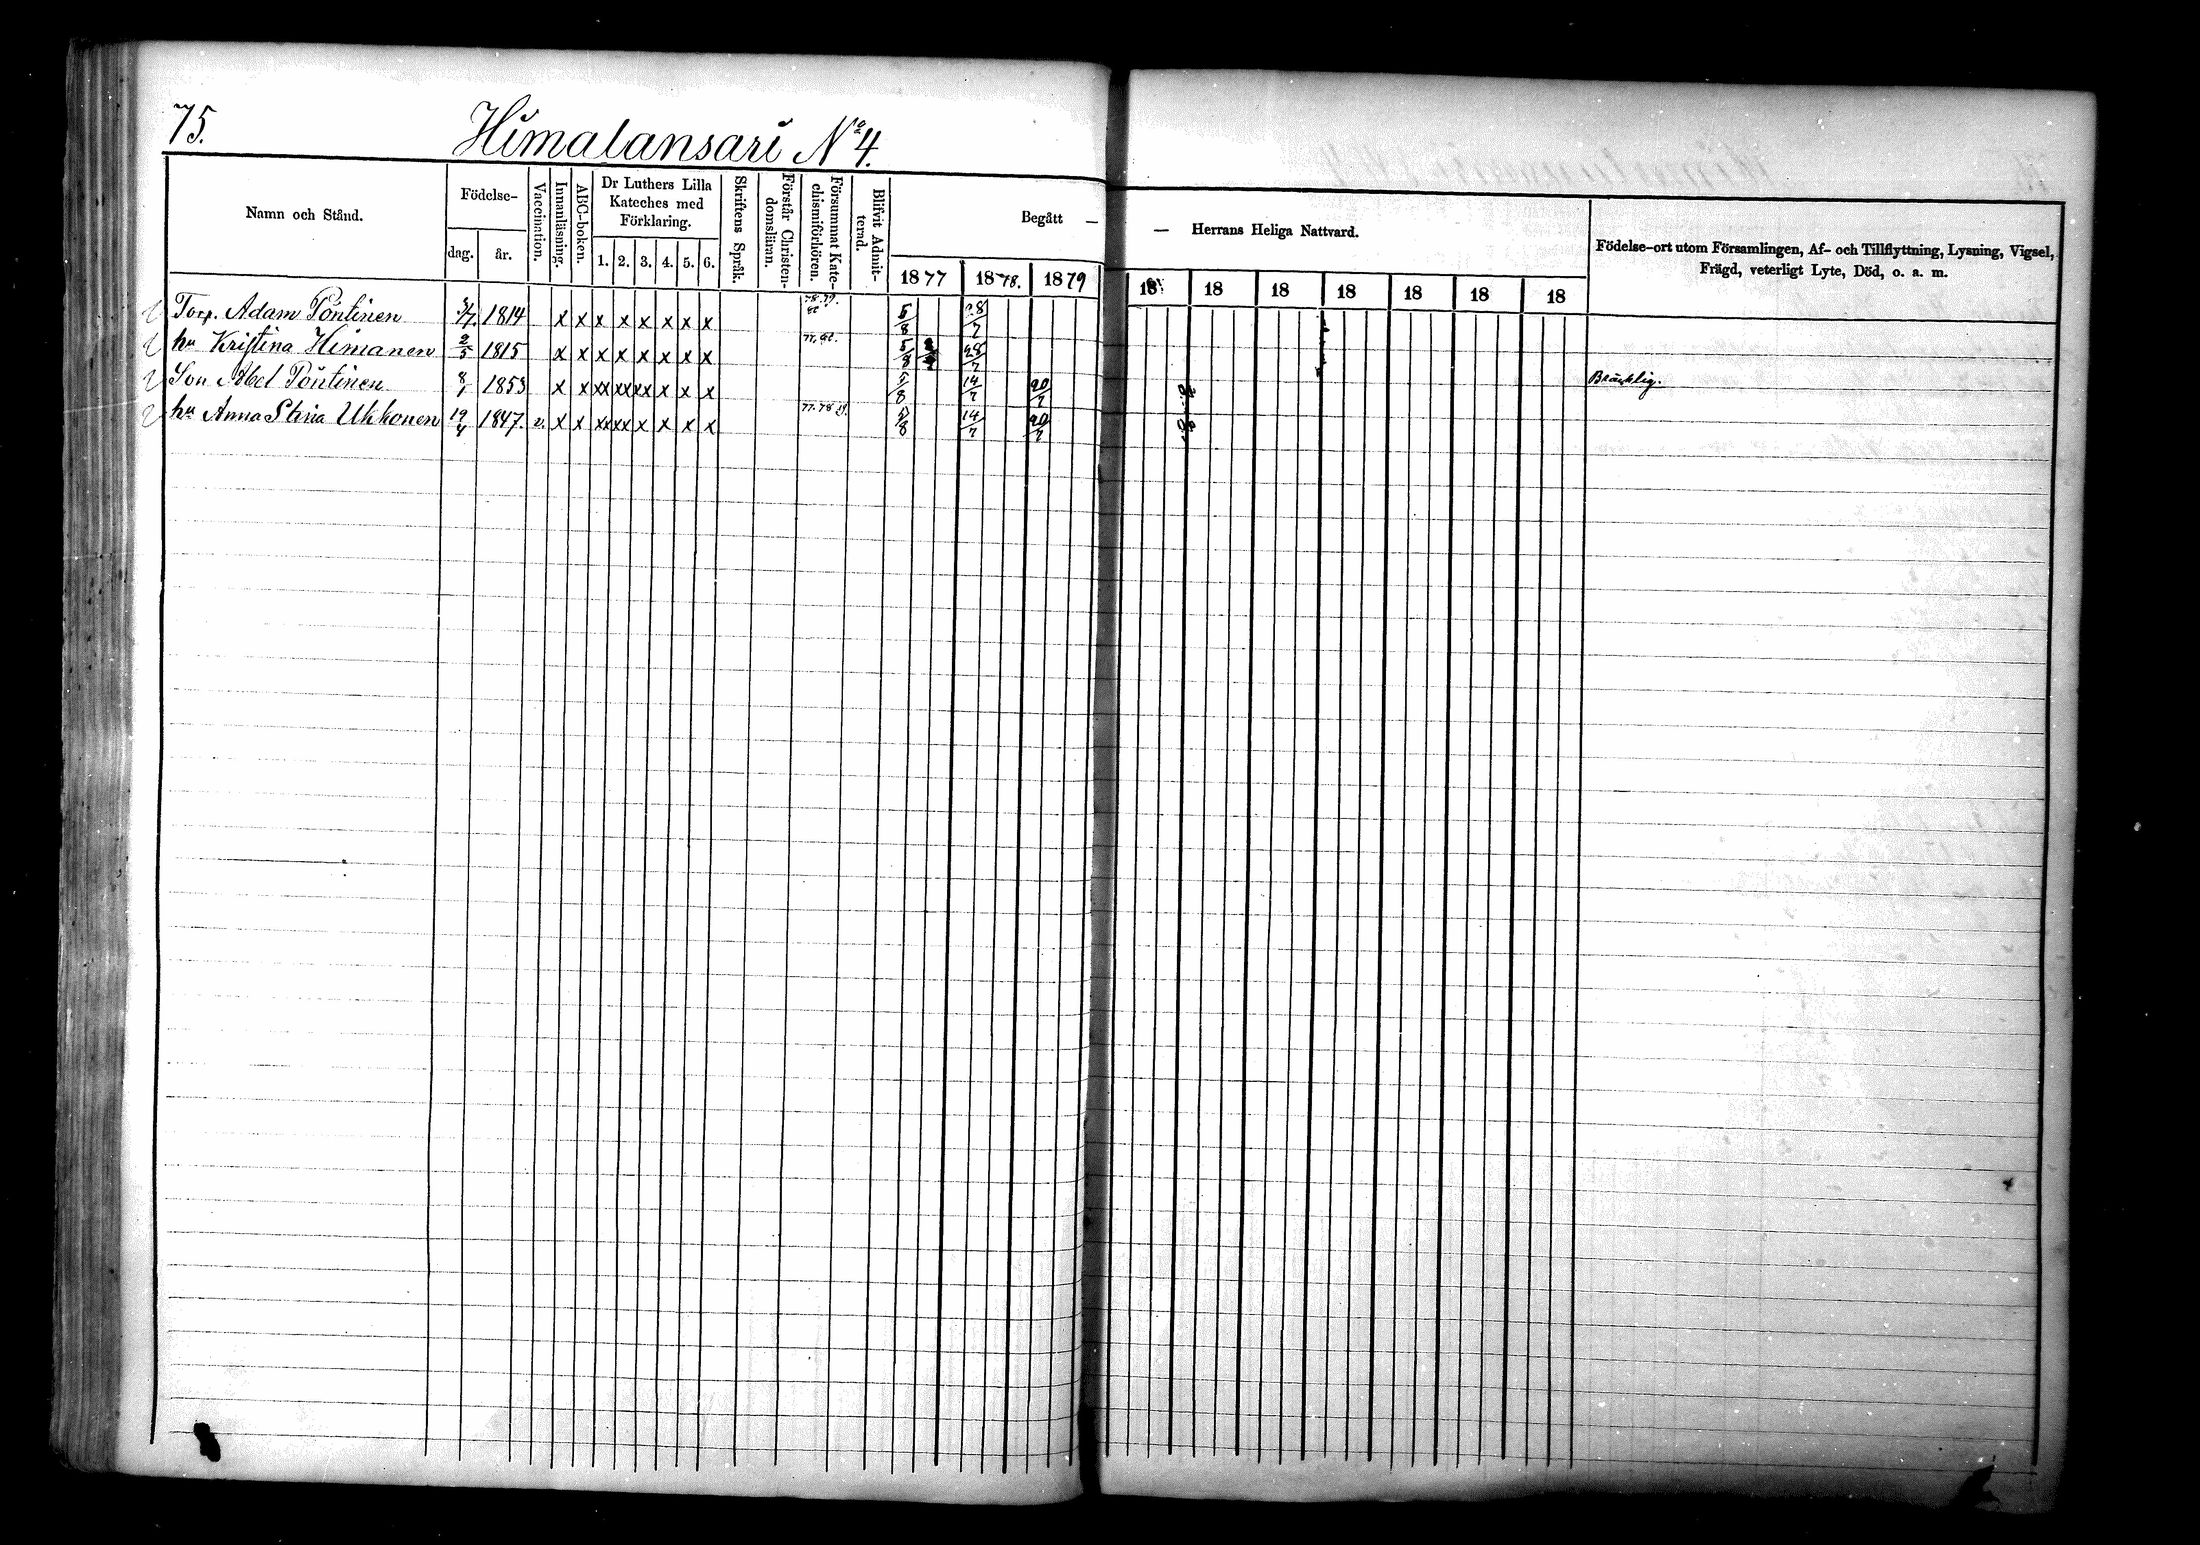 75.
Himalansari No 4.
Namn och Stånd.
Födelse-
dag.
år.
Vaccination.
Innanläsning.
ABC-boken.
Dr Luthers Lilla
Kateches med
Förklaring.
1. 2. 3. 4. 5. 6.
Skriftens Språk.
Förstår Christen-
domsläran.
Försummat Kate-
chismiförhören.
Blifvit Admit-
terad.
Begått —
1877 1878. 1879
— Herrans Heliga Nattvard.
18 18 18 18 18 18 18
Födelse-ort utom Församlingen, Af- och Tillflyttning, Lysning, Vigsel,
Frägd, veterligt Lyte, Död, o. a. m.
Torp. Adam Pöntinen 1814 x x x x x x x x 78. 79. 5/8 28/7
hu Kristina Himanen 2/5 1815 x x x x x x x x 77. 5/8 28/7
Son Abel Pöntinen 8/1 1853 x x xx xx xx x x x 5/8 14/7 20/7 Bräcklig.
hu Anna Stina Ukkonen 19/4 1847. v. x x xx xx x x x x 77. 78 79. 5/8 14/7 20/7